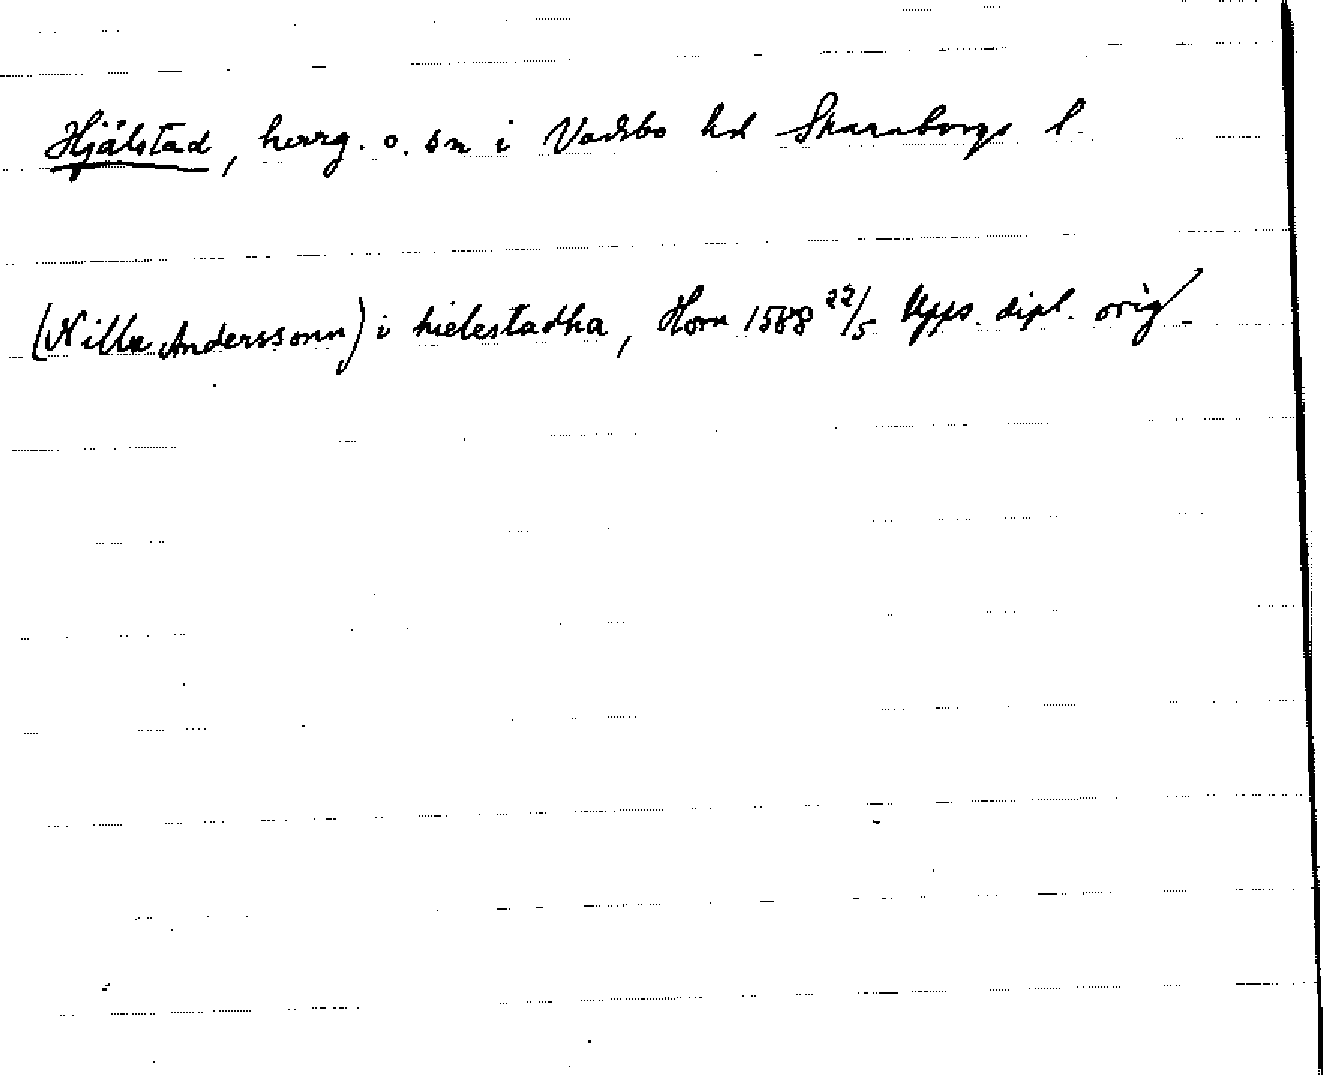 Hjälstad, herrg. o. sn i Vadsbo hd Skaraborgs l.
(Nills Anderssonn) i hielestadha, Horn 1588 22/5 Upps. dipl. orig.